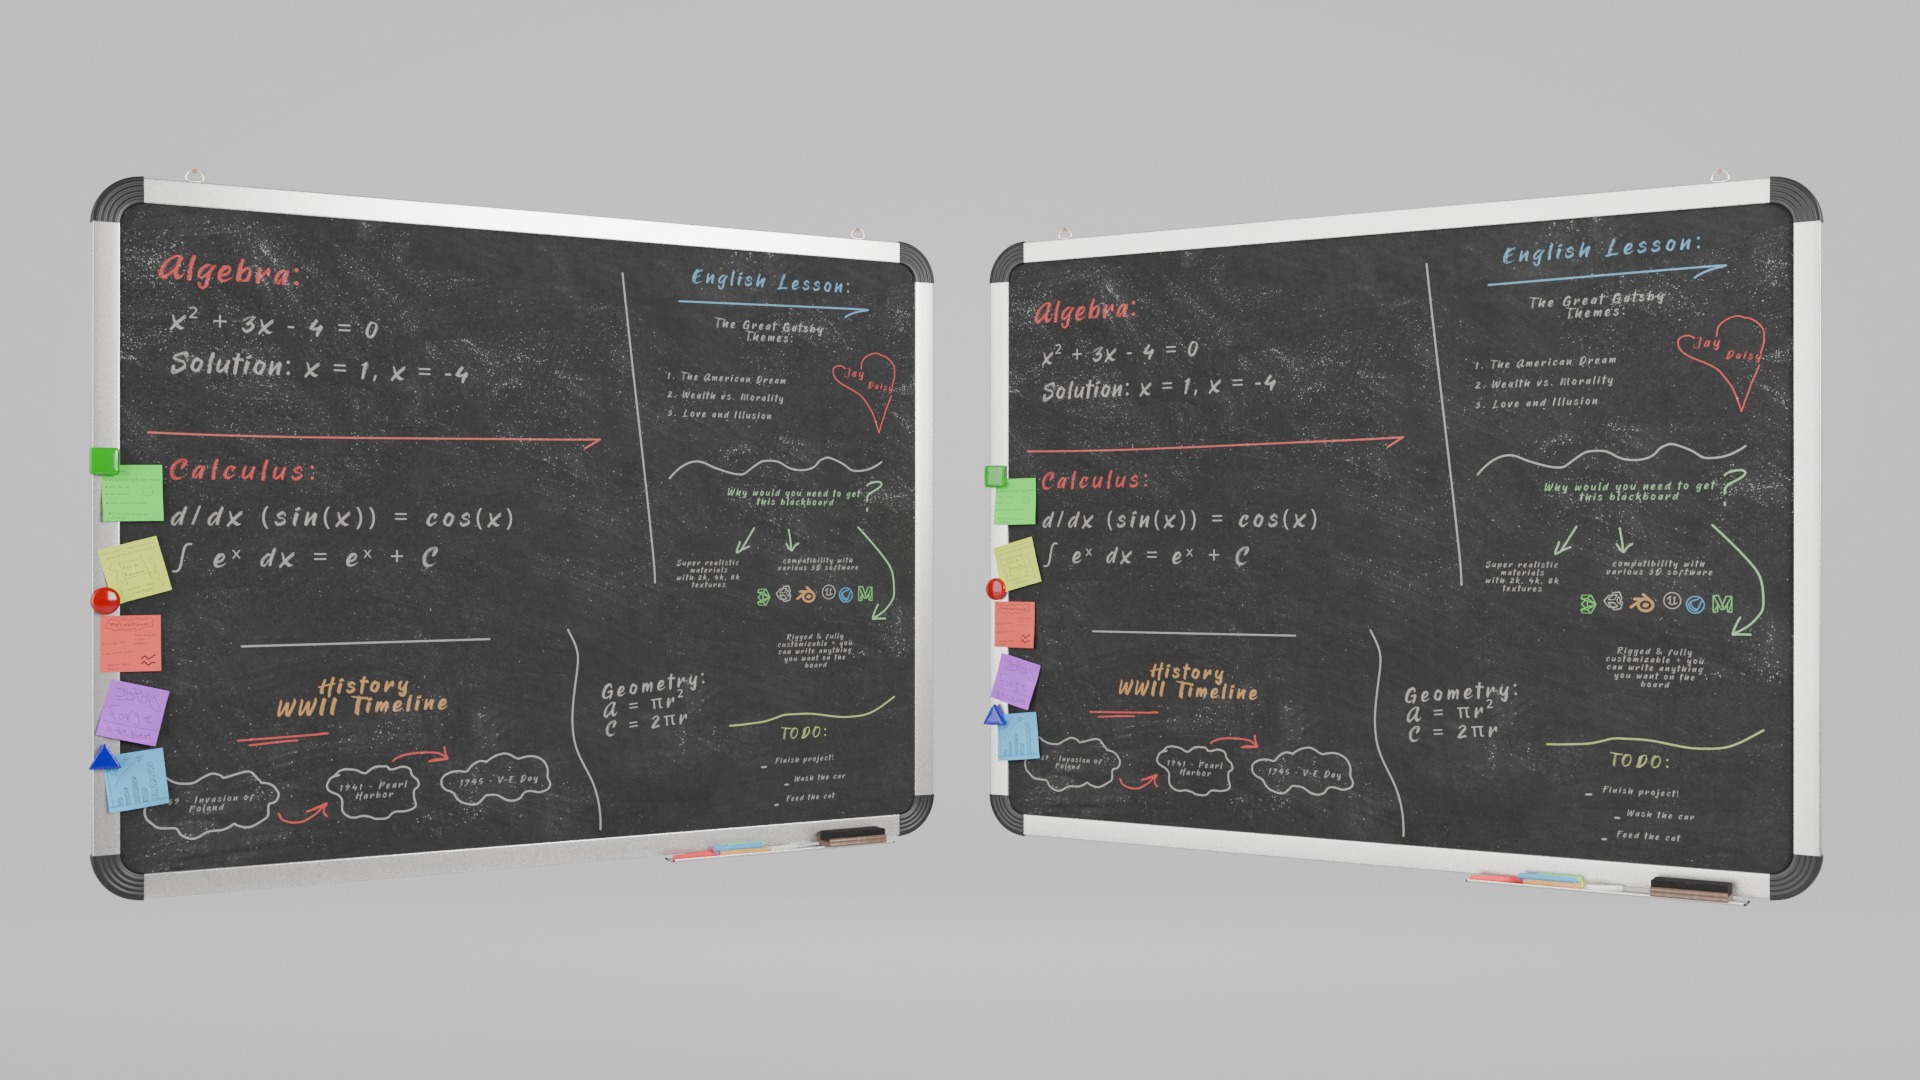 Algebra:
x² + 3x - 4 = 0
Solution: x = 1, x = -4
Calculus:
d/dx (sin(x)) = cos(x)
∫ eˣ dx = eˣ + C
History
WWII Timeline
39 - Invasion of
Poland
1941 - Pearl
Harbor
1945 - V-E Day
Geometry:
A = πr²
C = 2πr
English Lesson:
The Great Gatsby
Themes:
1. The American Dream
2. Wealth vs. Morality
3. Love and Illusion
Jay
Daisy
Why would you need to get
this blackboard
?
Super realistic
materials
with 2k, 4k, 8k
textures
compatibility with
various 3D software
Rigged & fully
customizable + you
can write anything
you want on the
board
TODO:
- Finish project!
- Wash the car
- Feed the cat
Algebra:
x² + 3x - 4 = 0
Solution: x = 1, x = -4
Calculus:
d/dx (sin(x)) = cos(x)
∫ eˣ dx = eˣ + C
History
WWII Timeline
39 - Invasion of
Poland
1941 - Pearl
Harbor
1945 - V-E Day
Geometry:
A = πr²
C = 2πr
English Lesson:
The Great Gatsby
Themes:
1. The American Dream
2. Wealth vs. Morality
3. Love and Illusion
Jay
Daisy
Why would you need to get
this blackboard
?
Super realistic
materials
with 2k, 4k, 8k
textures
compatibility with
various 3D software
Rigged & fully
customizable + you
can write anything
you want on the
board
TODO:
- Finish project!
- Wash the car
- Feed the cat